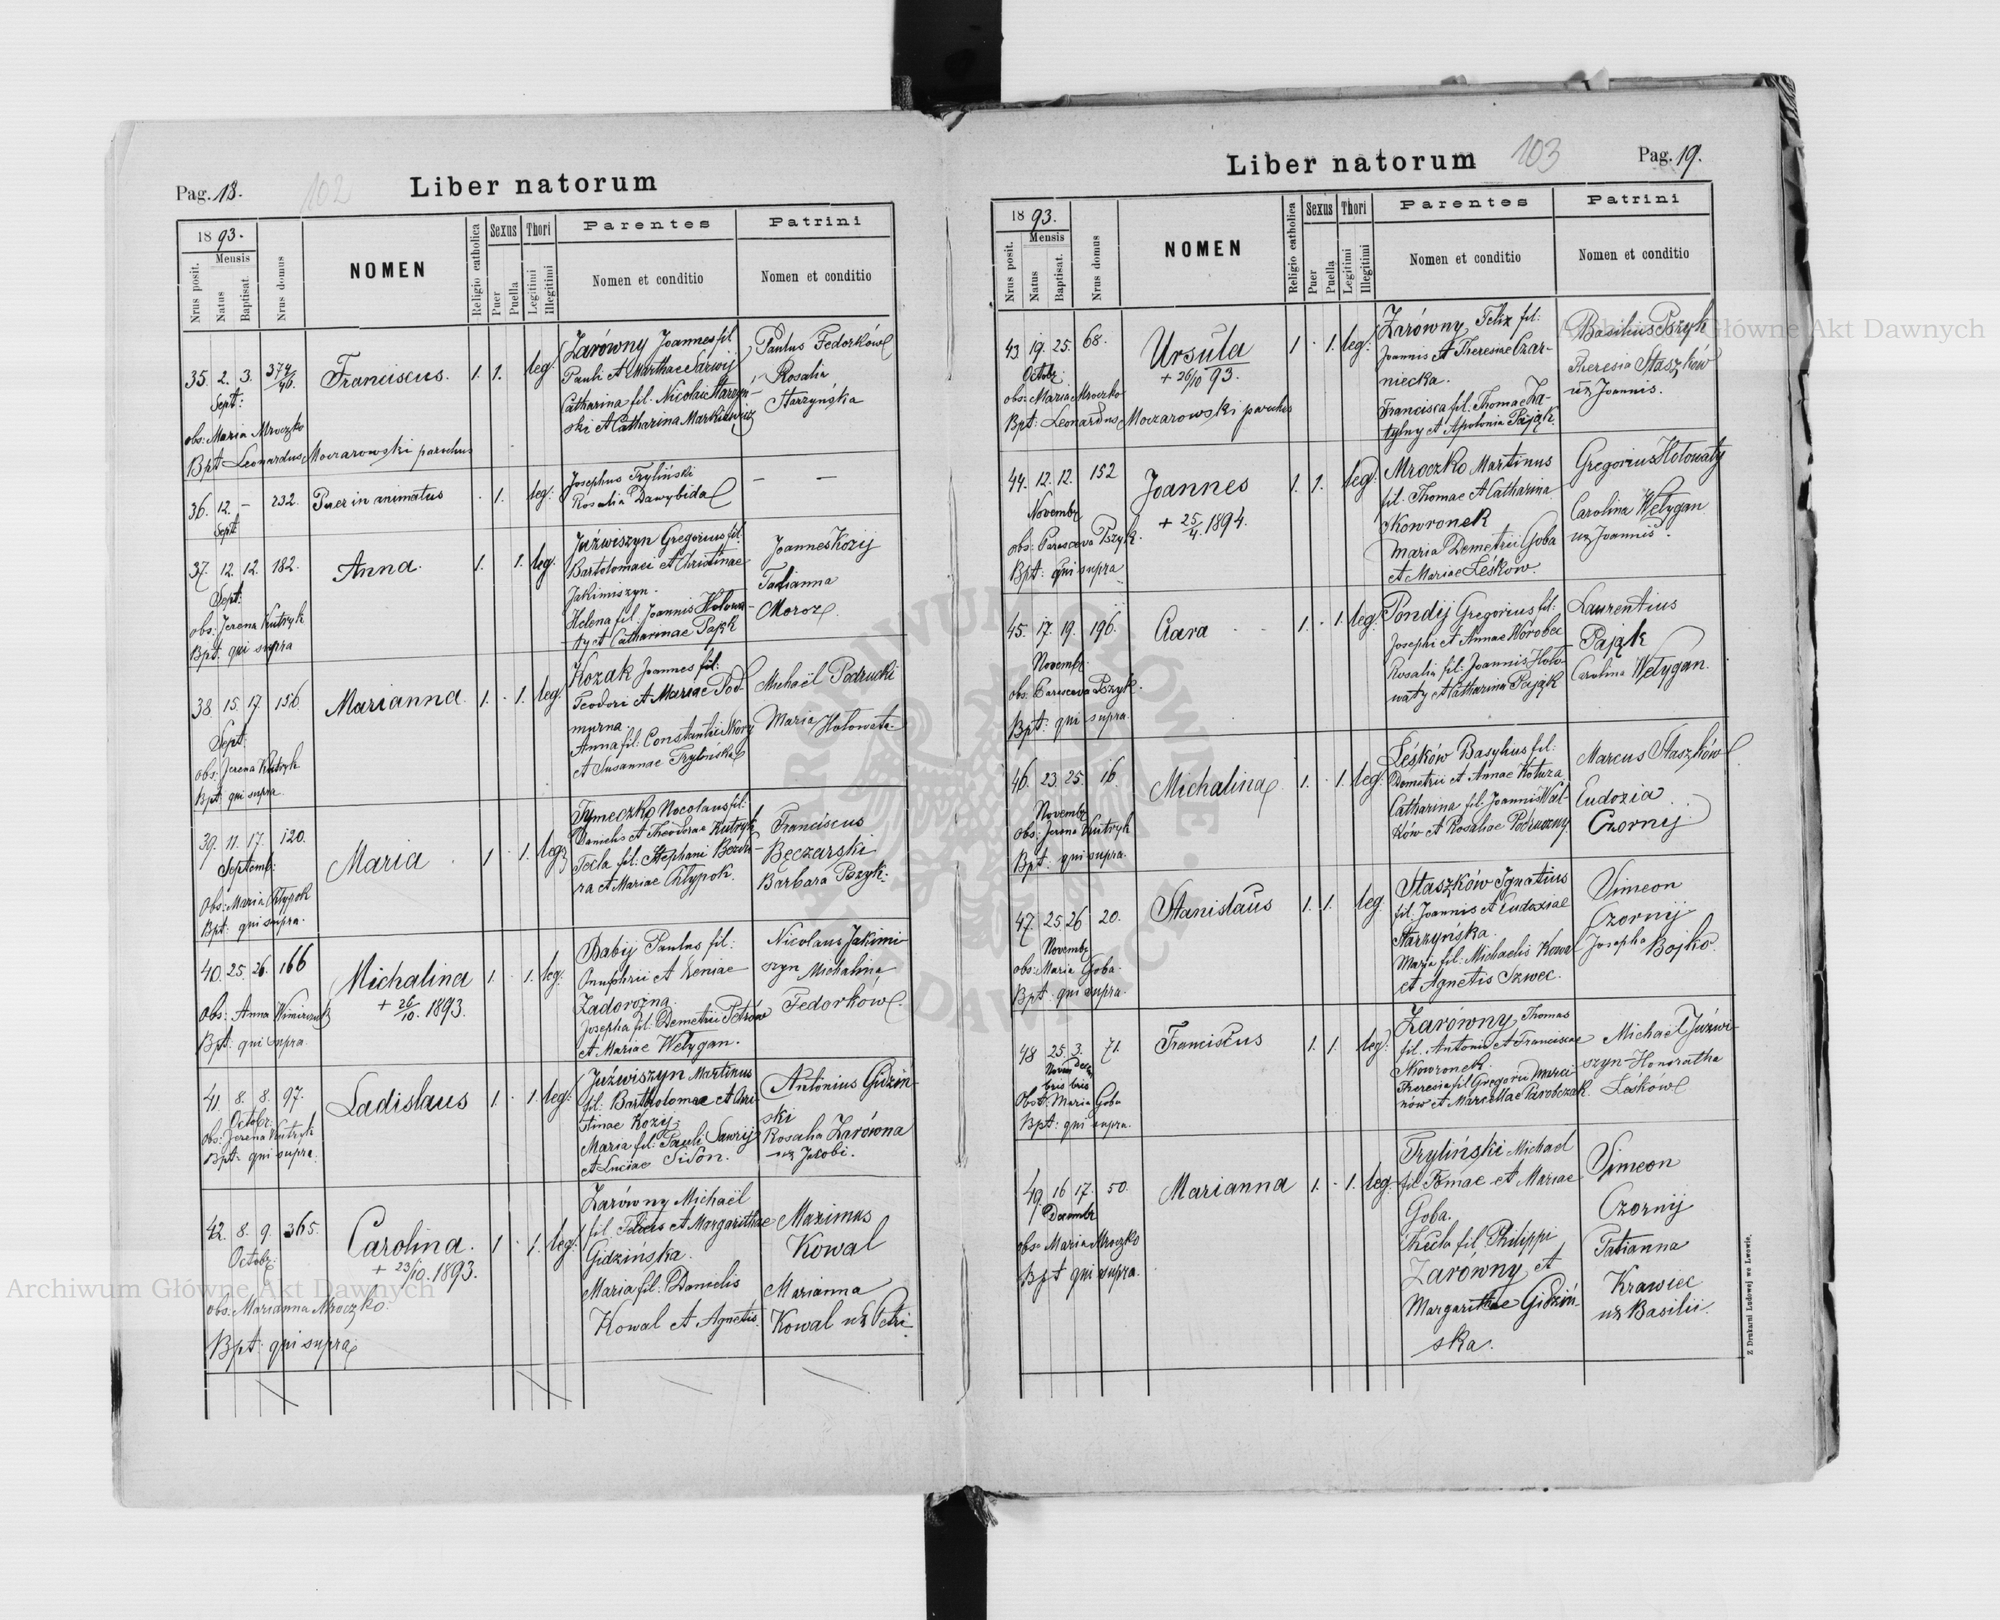 Pag. 18.
102
Liber natorum
1893.
Nrus posit.
Mensis
Natus
Baptisat.
Nrus domus
NOMEN
Religio catholica
Sexus
Puer
Puella
Thori
Legitimi
Illegitimi
Parentes
Nomen et conditio
Patrini
Nomen et conditio
35. 2. 3. 374/46. Franciscus. 1. 1. leg.
Sept:
obs: Maria Mroczko
Bpt Leonardus Moczarowski parochus
Żarówny Joannes fil
Pauli et Marthae Sawij
Catharina fil. Nicolai Starzyń-
ski et Catharina Markiewicz
Paulus Fedorków
Rosalia
Starzyńska
36. 12. – 232. Puer in animatus . 1. leg:
Sept
Josephus Tryliński
Rosalia Dawybida
— —
37. 12. 12. 182. Anna. 1. 1. leg.
Sept:
obs: Jerena Kutryk
Bpt. qui supra
Juźwiszyn Gregorius fil.
Bartolomaei et Christinae
Jakimiszyn.
Helena fil. Joannis Hołowa-
ty et Catharinae Pająk
Joannes Kozij
Tatianna
Moroz
38. 15. 17. 156. Marianna. 1. . 1. leg
Sept:
obs: Jerena Kutryk
Bpt. qui supra.
Kozak Joannes fil:
Teodori et Mariae Pod-
murna.
Anna fil: Constantii
et Susannae Trylińska
Michaël Podrucki
Maria Hołoweta
39. 11. 17. 120. Maria 1. 1. leg
Septemb:
Obs: Maria Chłypok
Bpt: qui supra.
Tymeczko Nocolaus fil:
Danielis et Theodorae Kutryk
Tecla fil: Stephani
ra et Mariae Chłypok.
Franciscus
Bęczarski
Barbara Pszyk.
40. 25. 26. 166 Michalina 1. 1. leg.
+ 26/10. 1893.
Obs: Anna
Bpt: qui supra.
Babij Paulus fil:
Onuphrii et Xeniae
Zadorożna.
Josepha fil: Demetrii Petrów
et Mariae Wełygan.
Nicolaus Jakimi
szyn Michalina
Fedorków.
41. 8. 8. 97. Ladislaus 1. . 1. leg:
Octobr:
obs: Jerena Kutryk
Bpt: qui supra.
Juźwiszyn Martinus
fil: Bartholomae et Chri-
stinae Kozij
Maria fil: Pauli Sawrij
et Luciae Sidon.
Antonius Gidziń-
ski
Rosalia Żarówna
ux Jacobi.
42. 8. 9. 365. Carolina. 1. . 1. leg:
Octobr:
+ 23/10. 1893.
obs: Marianna Mroczko.
Bpt: qui supra
Żarówny Michaël
fil: Felicis et Margarithae
Gidzińska.
Maria fil: Danielis
Kowal et Agnetis.
Maximus
Kowal
Marianna
Kowal ux Petri.
Liber natorum
103
Pag. 19.
1893.
Nrus posit.
Mensis
Natus
Baptisat.
Nrus domus
NOMEN
Religio catholica
Sexus
Puer
Puella
Thori
Legitimi
Illegitimi
Parentes
Nomen et conditio
Patrini
Nomen et conditio
43 19. 25. 68. Ursula 1 . 1. leg:
Octobr:
+ 26/10 93.
obs: Maria Mroczko
Bpt: Leonardus Moczarowski parochus
Żarówny Felix fil:
Joannis et Theresiae Czar-
niecka.
Francisca fil. Thomae Za-
tylny et Apolonia Pająk.
Basilius Pszyk
Theresia Staszków
ux Joannis.
44. 12. 12. 152 Joannes 1. 1. leg.
Novembr
+ 25/4. 1894.
obs: Parasceva Pszyk.
Bpt: qui supra
Mroczko Martinus
fil. Thomae et Catharina
Skowronek
Maria Demetrii Goba
et Mariae Leśków.
Gregorius Hołowaty
Carolina Wełygan
ux Joannis.
45. 17. 19. 196. Clara 1. . 1. leg.
Novembr.
obs: Parasceva Pszyk.
Bpt: qui supra.
Pondij Gregorius fil:
Josephi et Annae Worobec
Rosalia fil: Joannis Hoło-
waty et Catharina Pająk
Laurentius
Pająk
Carolina Wełygan.
46. 23. 25. 16. Michalina 1. . 1. leg.
Novembr
obs: Jerena Kutryk
Bpt: qui supra.
Leśków Basylius fil:
Demetrii et Annae Kotuza
Catharina fil. Joannis
ków et Rosaliae Podruczny
Marcus Staszków
Eudozia
Czornij
47. 25. 26 20. Stanislaus 1. 1. leg.
Novembr
obs: Maria Goba.
Bpt: qui supra.
Staszków Ignatius
fil. Joannis et Eudoxiae
Starzyńska.
Maria fil: Michaelis Kowal
et Agnetis Szwec.
Simeon
Czornij
Josepha Bojko.
48 25. 3. 71. Franciscus 1. 1. leg:
Novem Decem
bris bris
Obst: Maria Goba
Bpt: qui supra.
Żarówny Thomas
fil. Antonii et Franciscae
Skowronek.
Theresia fil Gregorii Marci
nów et Marcellae Parobczak.
Michaël Juźwi-
szyn Honoratha
Leśków
49. 16 17. 50. Marianna 1. - 1. leg.
Decembr
obs: Maria Mroczko
Bpt qui supra.
Tryliński Michael
fil. Tomae et Mariae
Goba.
Thecla fil. Philippi
Żarówny et
Margarithae Gidziń-
ska.
Simeon
Czornij
Tatianna
Krawiec
ux Basilii.
Z Drukarni Ludowej we Lwowie.
Archiwum Główne Akt Dawnych
Archiwum Główne Akt Dawnych
ARCHIWUM GŁÓWNE AKT DAWNYCH